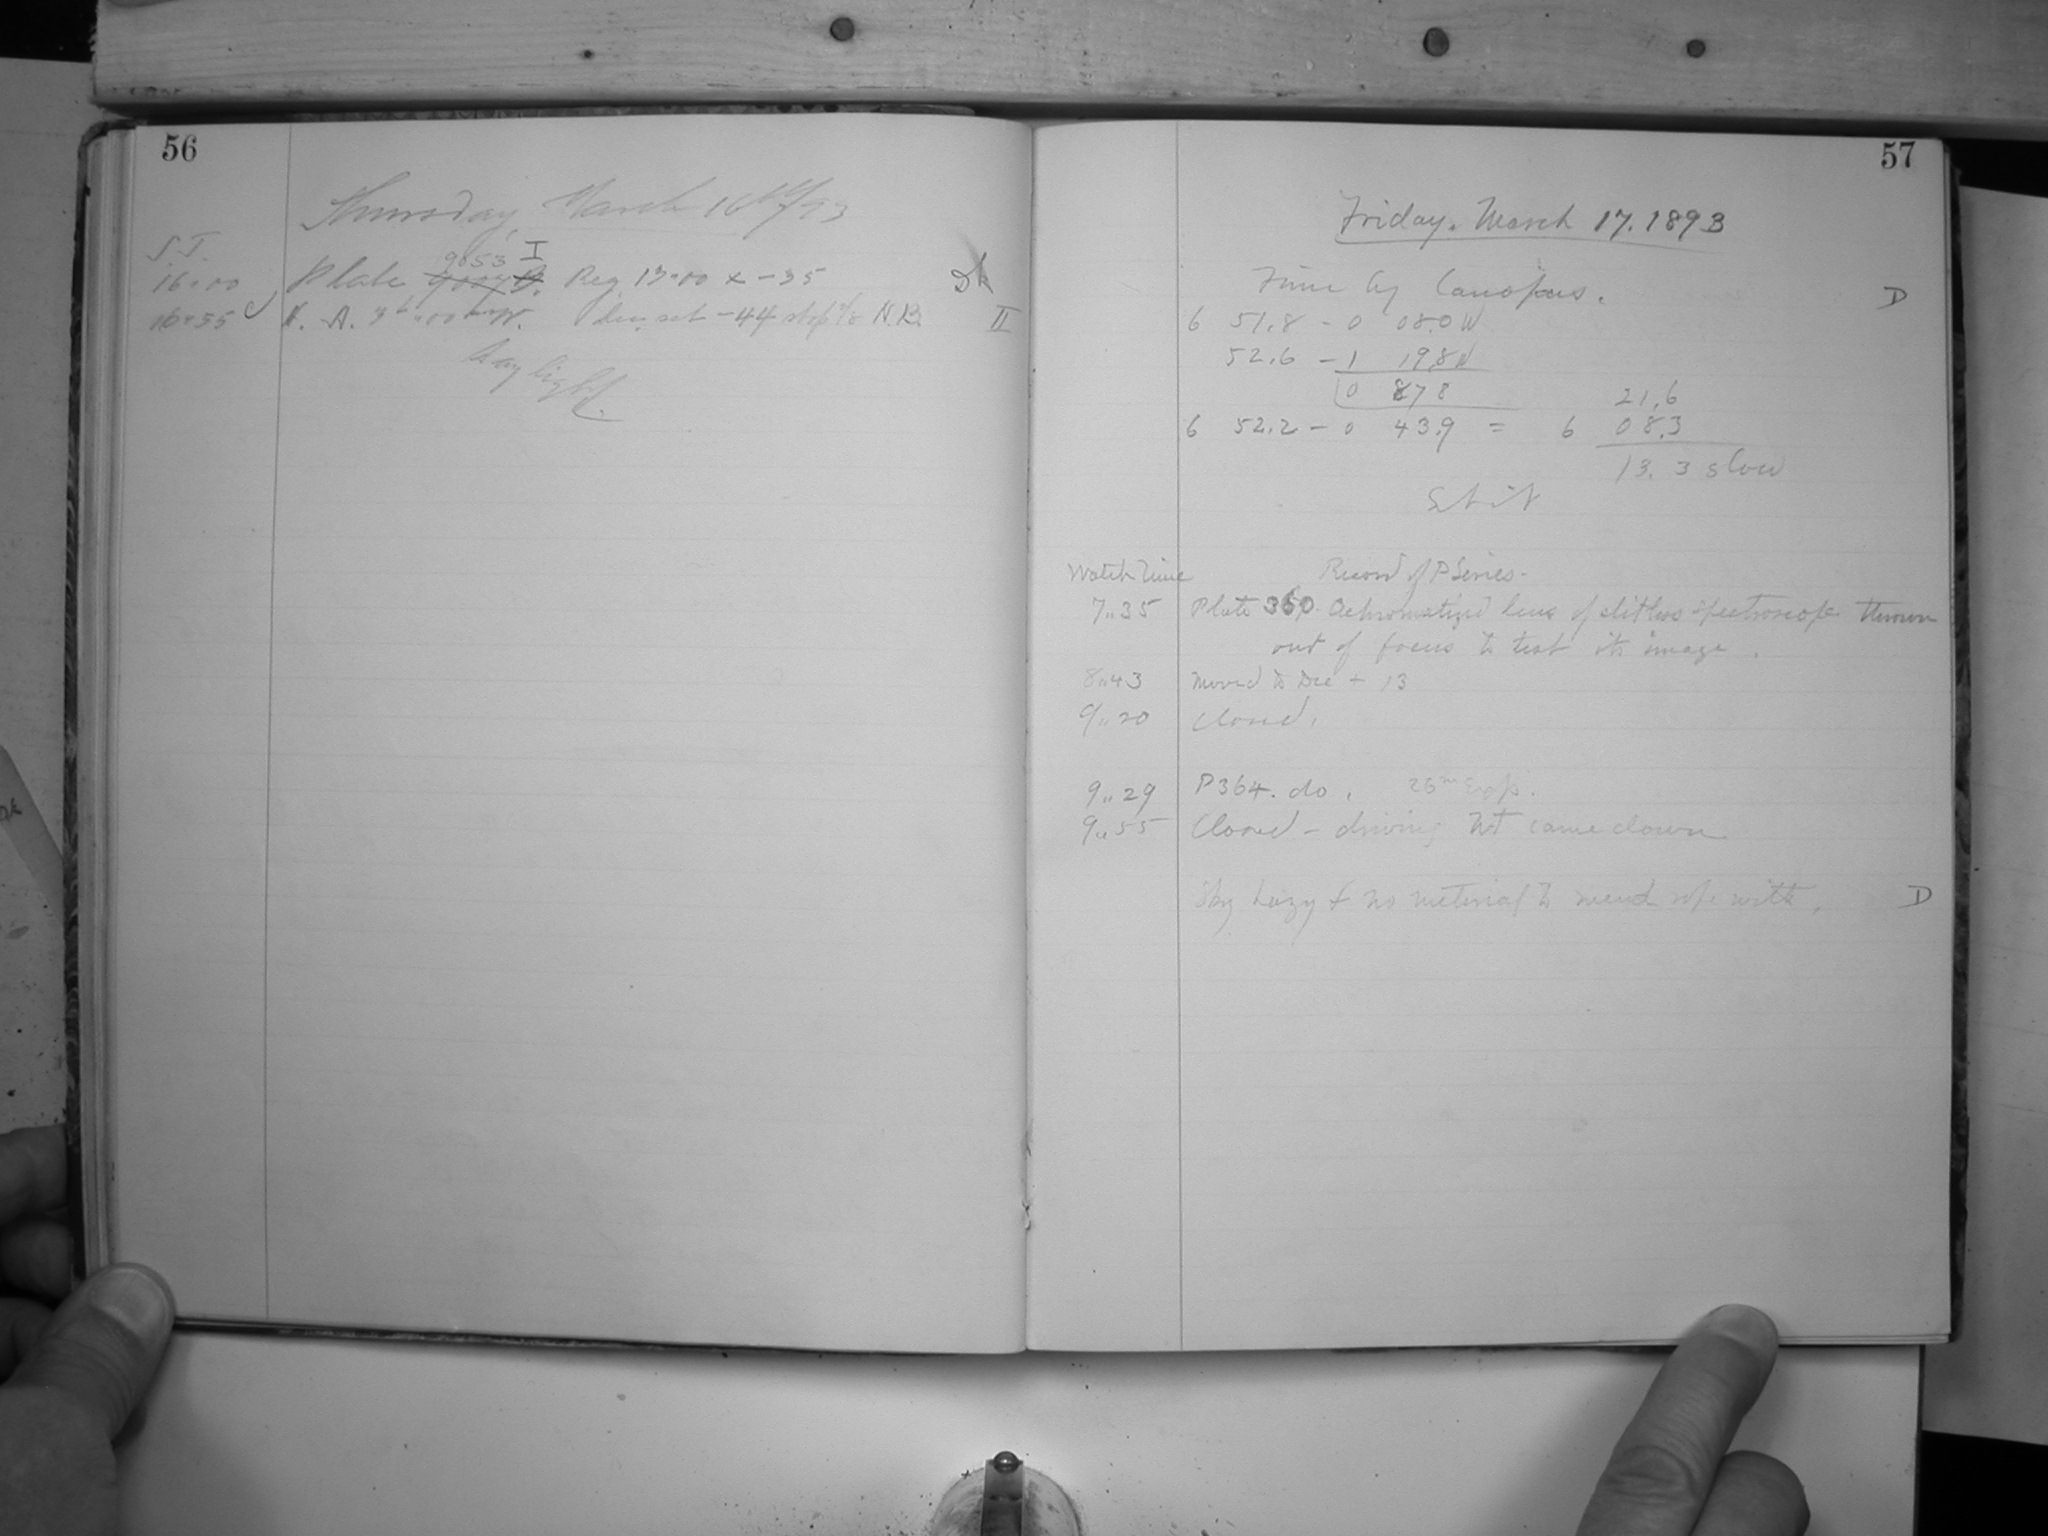 56
Thursday, March 16th/93
S.T.
9053 I
16"00 Plate Reg 13"00 x -35 Dk
16"55 H. A. 3h"00 W. dec. set -44 stop N.B. II
Daylight.
57
Friday, March 17, 1893
Time by Canopus. D
6 51.8 - 0 08.0 W
52.6 - 1 19.8 W
0 87 8 21.6
6 52.2 - 0 43.9 = 6 08.3
13.3 slow
Watch Time Record of P Series.
7"35 Plate 360. Achromatized lens of slitless spectroscope thrown
out of focus to test its image.
8"43 Moved to Dec + 13
9"20 Closed.
9"29 P364. do. 26m Exp.
9"55 Closed - driving Wt came down
Sky hazy & no material to mend rope with. D